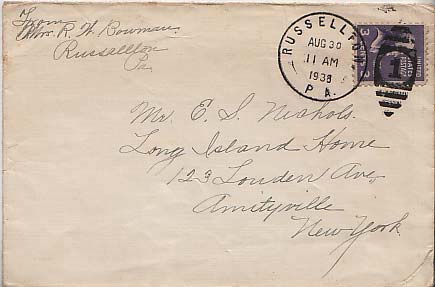 From
Wm. R. W. Bowman.
Russellton
Pa
RUSSELLTON
AUG 30
11 AM
1938
P A.
Mr. E. S. Nichols.
Long Island Home
123 Louden Ave,
Amityville
New York.